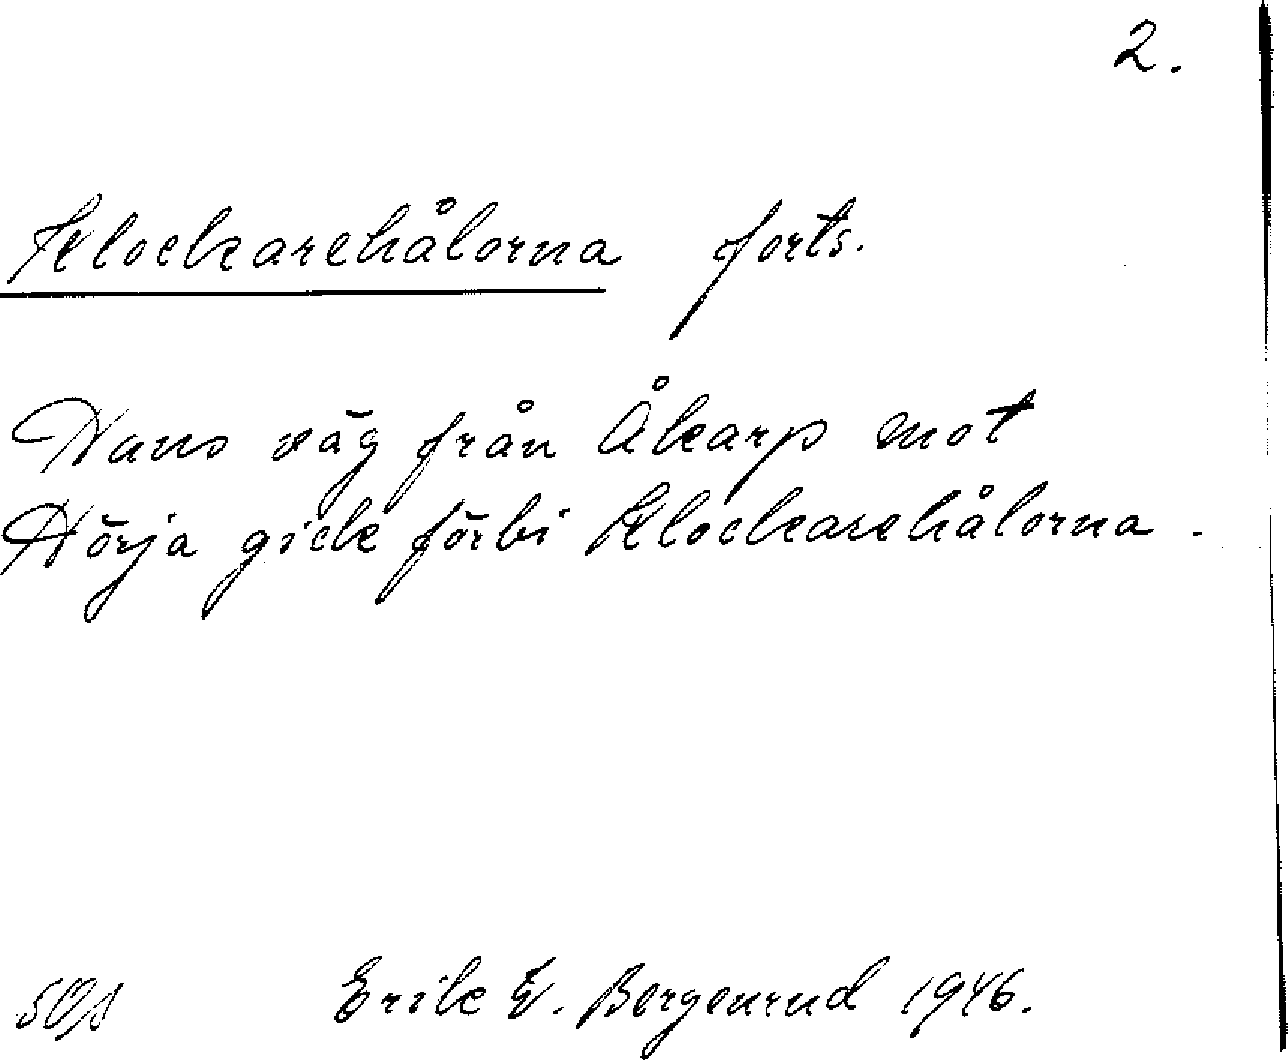 2.
Klockarehålorna forts.
Hans väg från Åkarp mot
Hörja gick förbi Klockarehålorna.
Erik E. Bergenrud 1946.